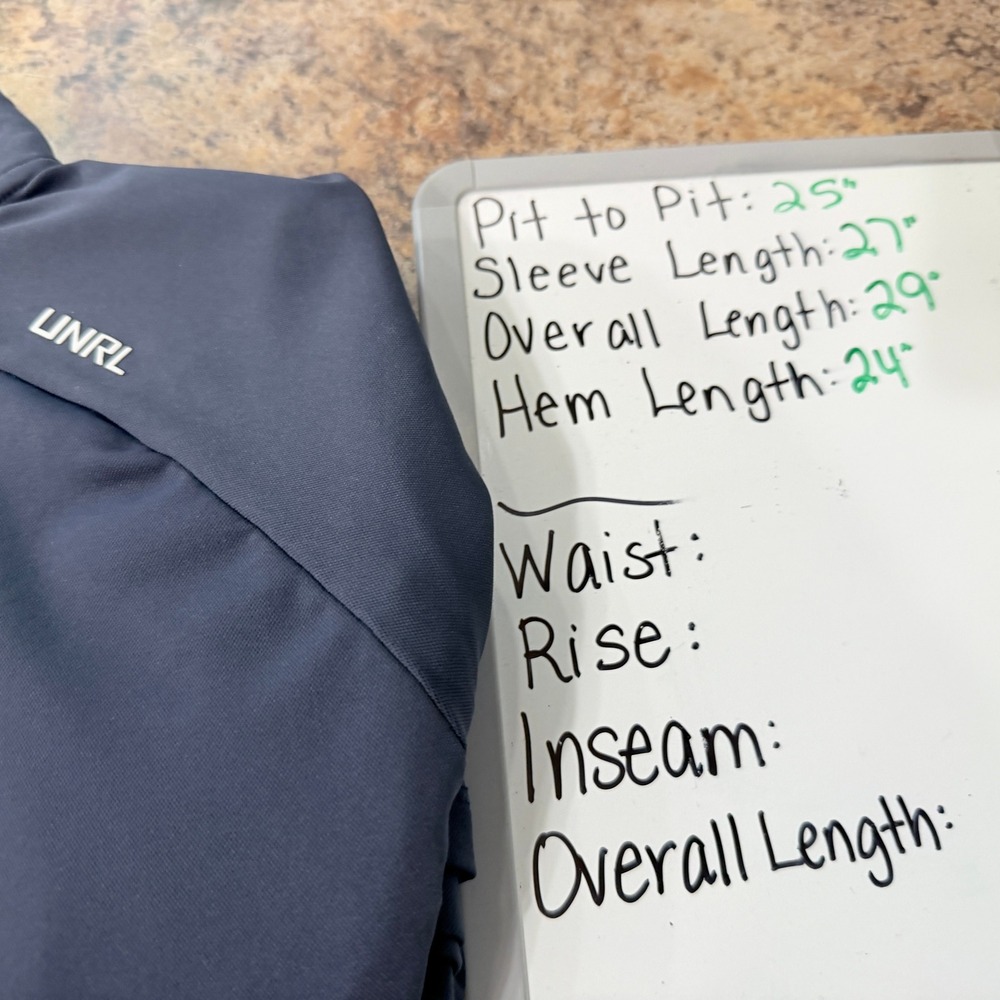 UNRL
Pit to Pit: 25"
Sleeve Length: 27"
Overall Length: 29"
Hem Length: 24"
Waist:
Rise:
Inseam:
Overall Length: